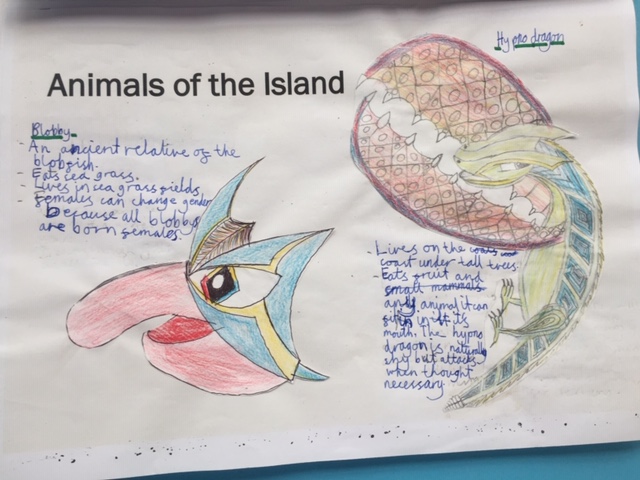 Animals of the Island
Hypno dragon
Blobby
- An ancient relative of the
blobfish.
- Eats sea grass.
- Lives in sea grass fields,
- Females can change gender
because all blobbys
are born females.
- Lives on the
coast under tall trees.
- Eats fruit and
small mammals
any animal it can
fit in its
mouth. The hypno
dragon is naturally
shy but attacks
when thought
necessary